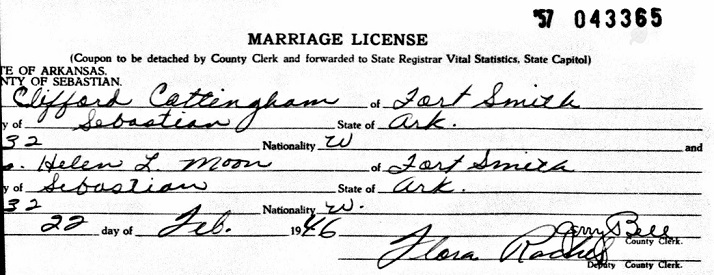 '57 043365
MARRIAGE LICENSE
(Coupon to be detached by County Clerk and forwarded to State Registrar Vital Statistics, State Capitol)
TE OF ARKANSAS.
NTY OF SEBASTIAN.
Clifford Cattingham of Fort Smith
y of Sebastian State of Ark.
32 Nationality W and
s. Helen L. Moon of Fort Smith
y of Sebastian State of Ark.
32 Nationality W.
22 day of Feb. 1946 Jerry Bell
County Clerk.
Flora
Deputy County Clerk.